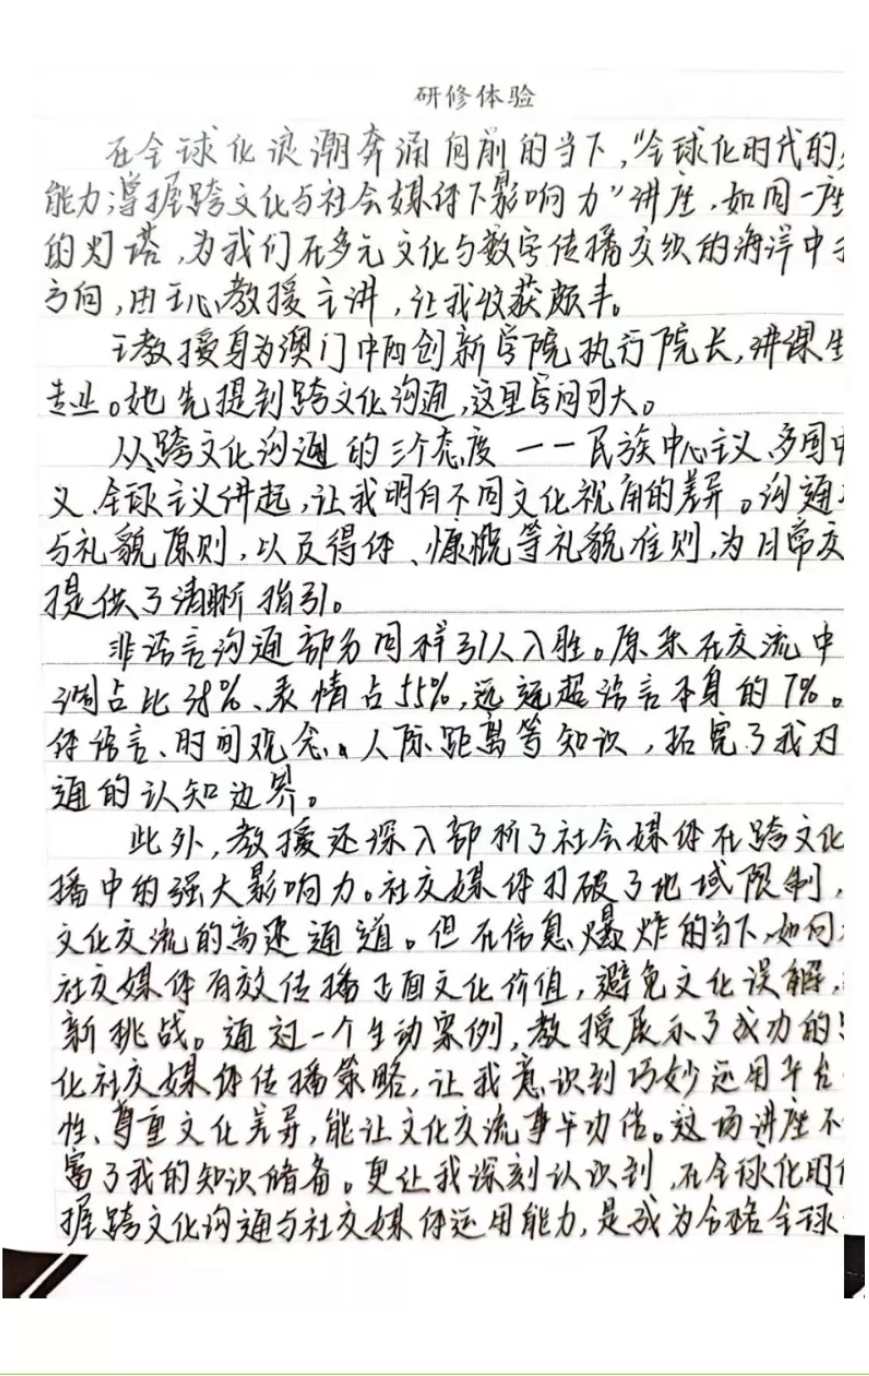 研修体验
在全球化浪潮奔涌向前的当下,"全球化时代的
能力:掌握跨文化与社会媒体下影响力"讲座,如同一座
的灯塔,为我们在多元文化与数字传播交织的海洋中
方向,由王心教授主讲,让我收获颇丰。
王教授身为澳门中西创新学院执行院长,讲课生
专业。她先提到跨文化沟通,这里学问可大。
从跨文化沟通的三个态度——民族中心主义、多国中
义、全球主义讲起,让我明白不同文化视角的差异。沟通
与礼貌原则,以及得体、慷慨等礼貌准则,为日常交
提供了清晰指引。
非语言沟通部分同样引人入胜。原来在交流中
调占比38%、表情占55%,远远超语言本身的7%。
体语言、时间观念、人际距离等知识,拓宽了我对
通的认知边界。
此外,教授还深入部析了社会媒体在跨文化
播中的强大影响力。社交媒体打破了地域限制,
文化交流的高速通道。但在信息爆炸的当下,如何
社交媒体有效传播正面文化价值,避免文化误解,
新挑战。通过一个生动案例,教授展示了成功的
化社交媒体传播策略,让我意识到巧妙运用平台
性、尊重文化差异,能让文化交流事半功倍。这场讲座不
富了我的知识储备。更让我深刻认识到,在全球化时
握跨文化沟通与社交媒体运用能力,是成为合格全球